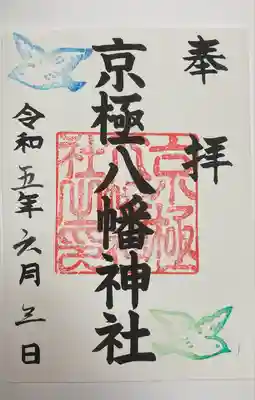 奉拝
京極八幡神社
京極八幡神社之印
令和五年六月三日